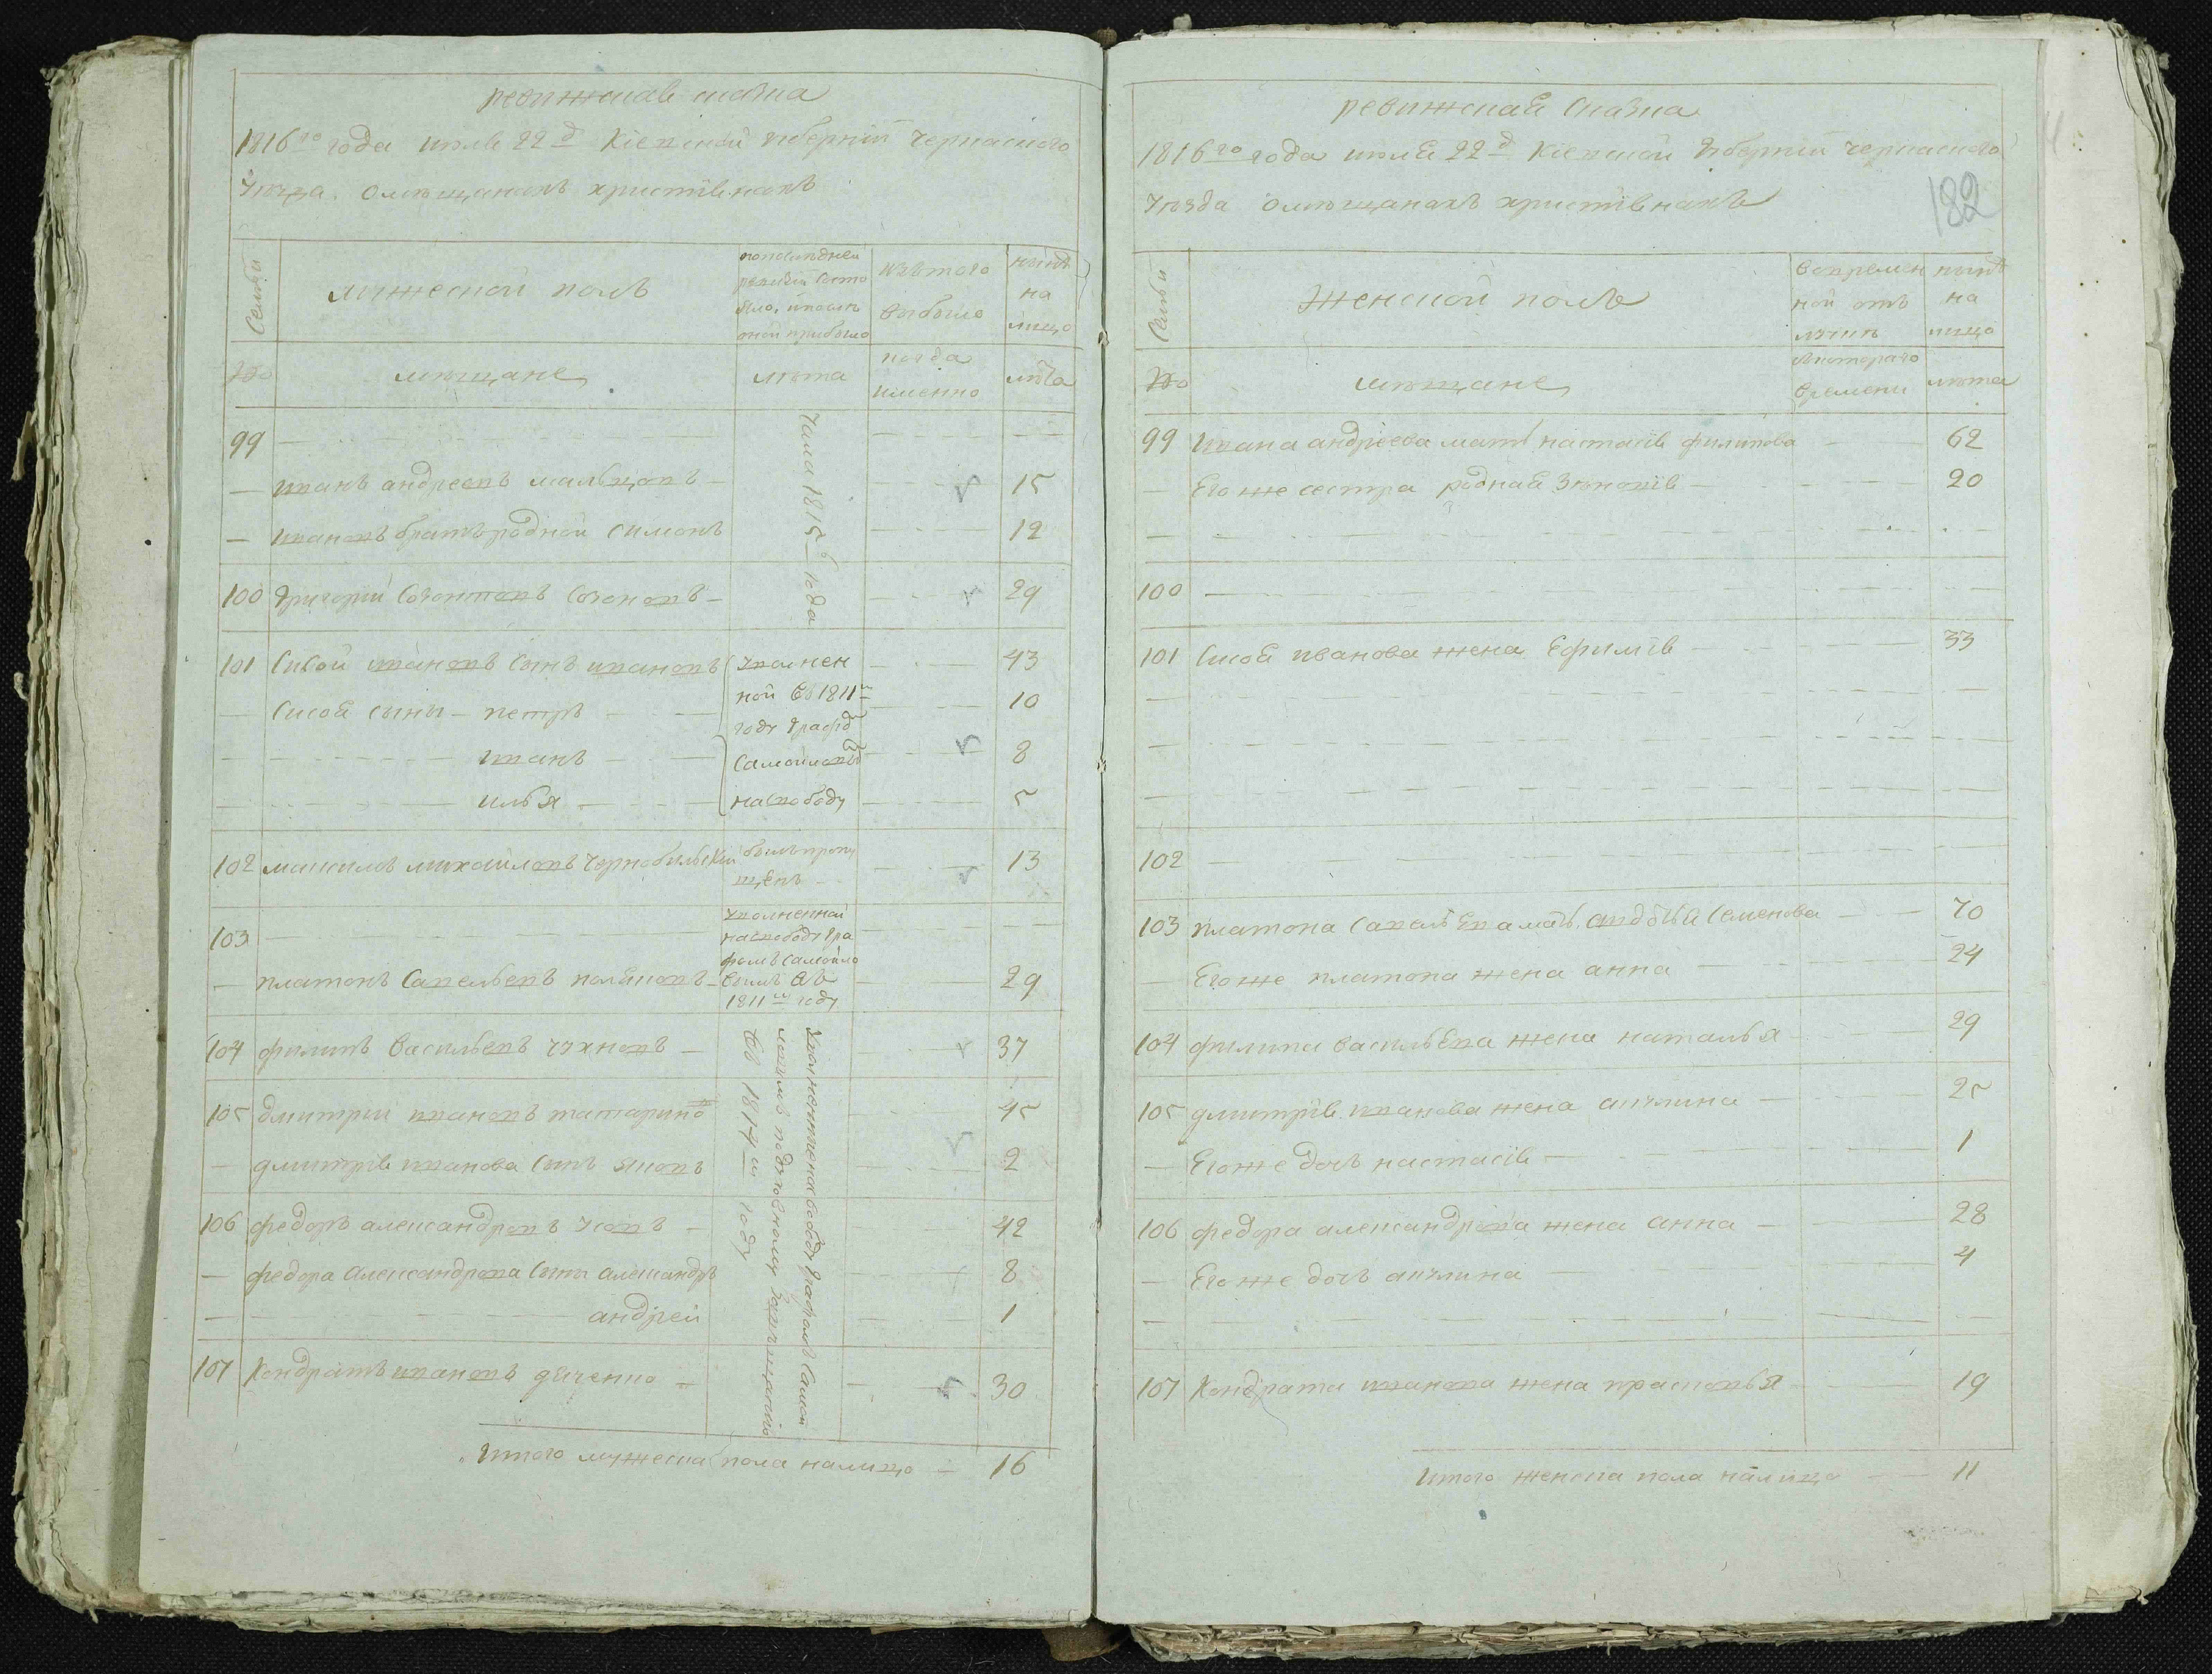 ревижская сказка
1816го года июля 22д Кіевской губерніи черкаского
уезда о мѣщанахъ христіянахъ
Семьи
мужеской полъ
попоследней
ревизіи состо
яло, ипосле
оной прибыло
изътого
выбыло
нынѣ
на
лицо
№
мѣщане
лѣта
когда
именно
лѣта
99
1815 года
иванъ андреевъ мальцовъ 15
ивановъ братъ родной симонъ 12
100 григорий созонтовъ созоновъ 29
101 сисой ивановъ сынъ ивановъ 43
сисоя сыны петръ 10
иванъ 8
илья 5
уволнен
ной въ 1811м
году граф
самойловы
насвободу
102 максимъ михайловъ чернобильский былъ пропу
щенъ 13
103
уволненной
насвободу гра
фомъ самойло
вымъ въ
1811м году
платонъ савельевъ поляковъ 29
104 филипъ васильевъ чухновъ 37
105 дмитрий ивановъ татарино 45
дмитрія иванова сынъ яковъ 2
106 федоръ александровъ усовъ 42
федора александрова сыны александръ 8
андрей 1
107 кондратъ ивановъ дяченко 30
въ 1814м году
уволнены насвободу графомъ самой
ловымъ
Итого мужеска пола налицо 16
ревижская сказка
1816го года июля 22д Кіевской губерніи черкаского
уезда о мѣщанахъ христіянахъ
182
Семьи
женской полъ
вовремен
ной отъ
лучкѣ
нынѣ
на
лицо
№
мѣщане
скоторого
времени
лѣта
99 ивана андреева мать настасія филипова 62
егоже сестра родная зѣновія 20
100
101 сисоя иванова жена ефимія 33
102
103 платона савельева мать авдотья семенова 70
егоже платона жена анна 24
104 филипа васильева жена наталья 29
105 дмитрія иванова жена акулина 25
егоже дочь настасія 1
106 федора александрова жена анна 28
егоже дочь акулина 4
107 кондрата иванова жена прасковья 19
Итого женска пола налицо 11